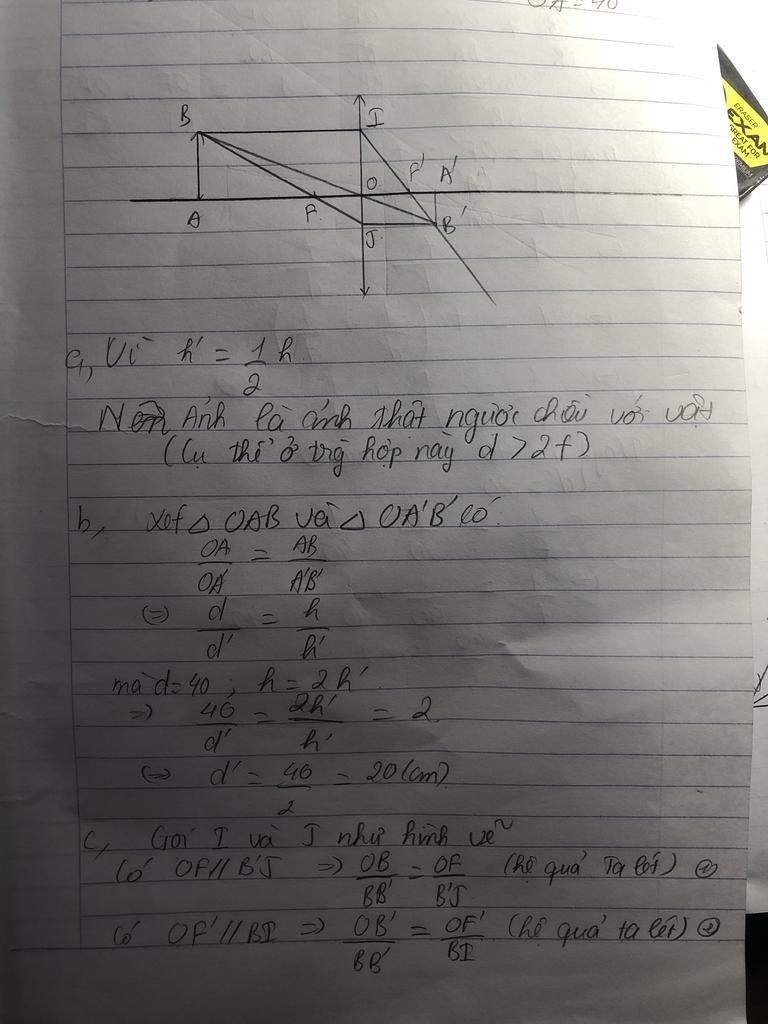 OA = 40
B
I
O
F'
A'
A
F
J
B'
ERASER
EXAM
GREAT FOR
EXAM
a, Vì h' = 1/2 h
Nên Ảnh là ảnh thật ngược chiều với vật
(Cụ thể ở trg hợp này d > 2f)
b, Xét △ OAB và △ OA'B' có
OA/OA' = AB/A'B'
(=) d/d' = h/h'
mà d = 40 ; h = 2h'
=) 40/d' = 2h'/h' = 2
(=) d' = 40/2 = 20 (cm)
c, Gọi I và J như hình vẽ
Có OF // B'J => OB/BB' = OF/B'J (hệ quả Ta lét) ①
Có OF' // BI => OB'/BB' = OF'/BI (hệ quả ta lét) ②